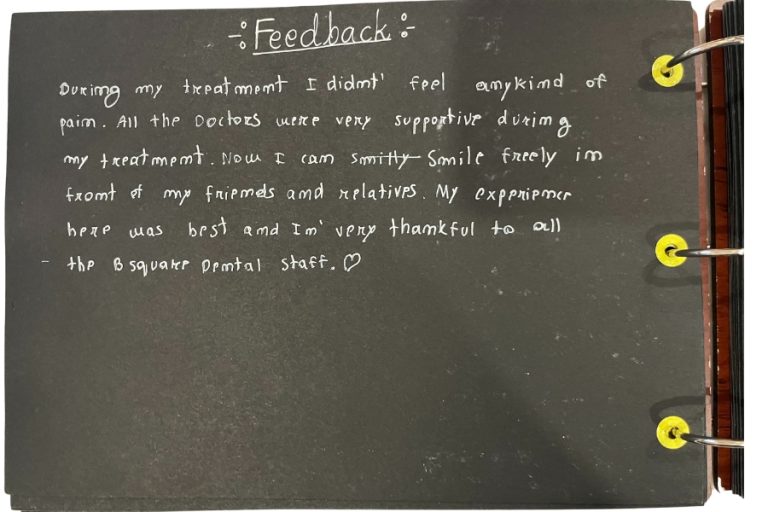 Feedback
During my treatment I didnt' feel anykind of
pain. All the Doctors were very supportive during
my treatment. Now I can smitly Smile freely in
front of my friends and relatives. My experience
here was best and Im' very thankful to all
- the B square Dental staff. ♡